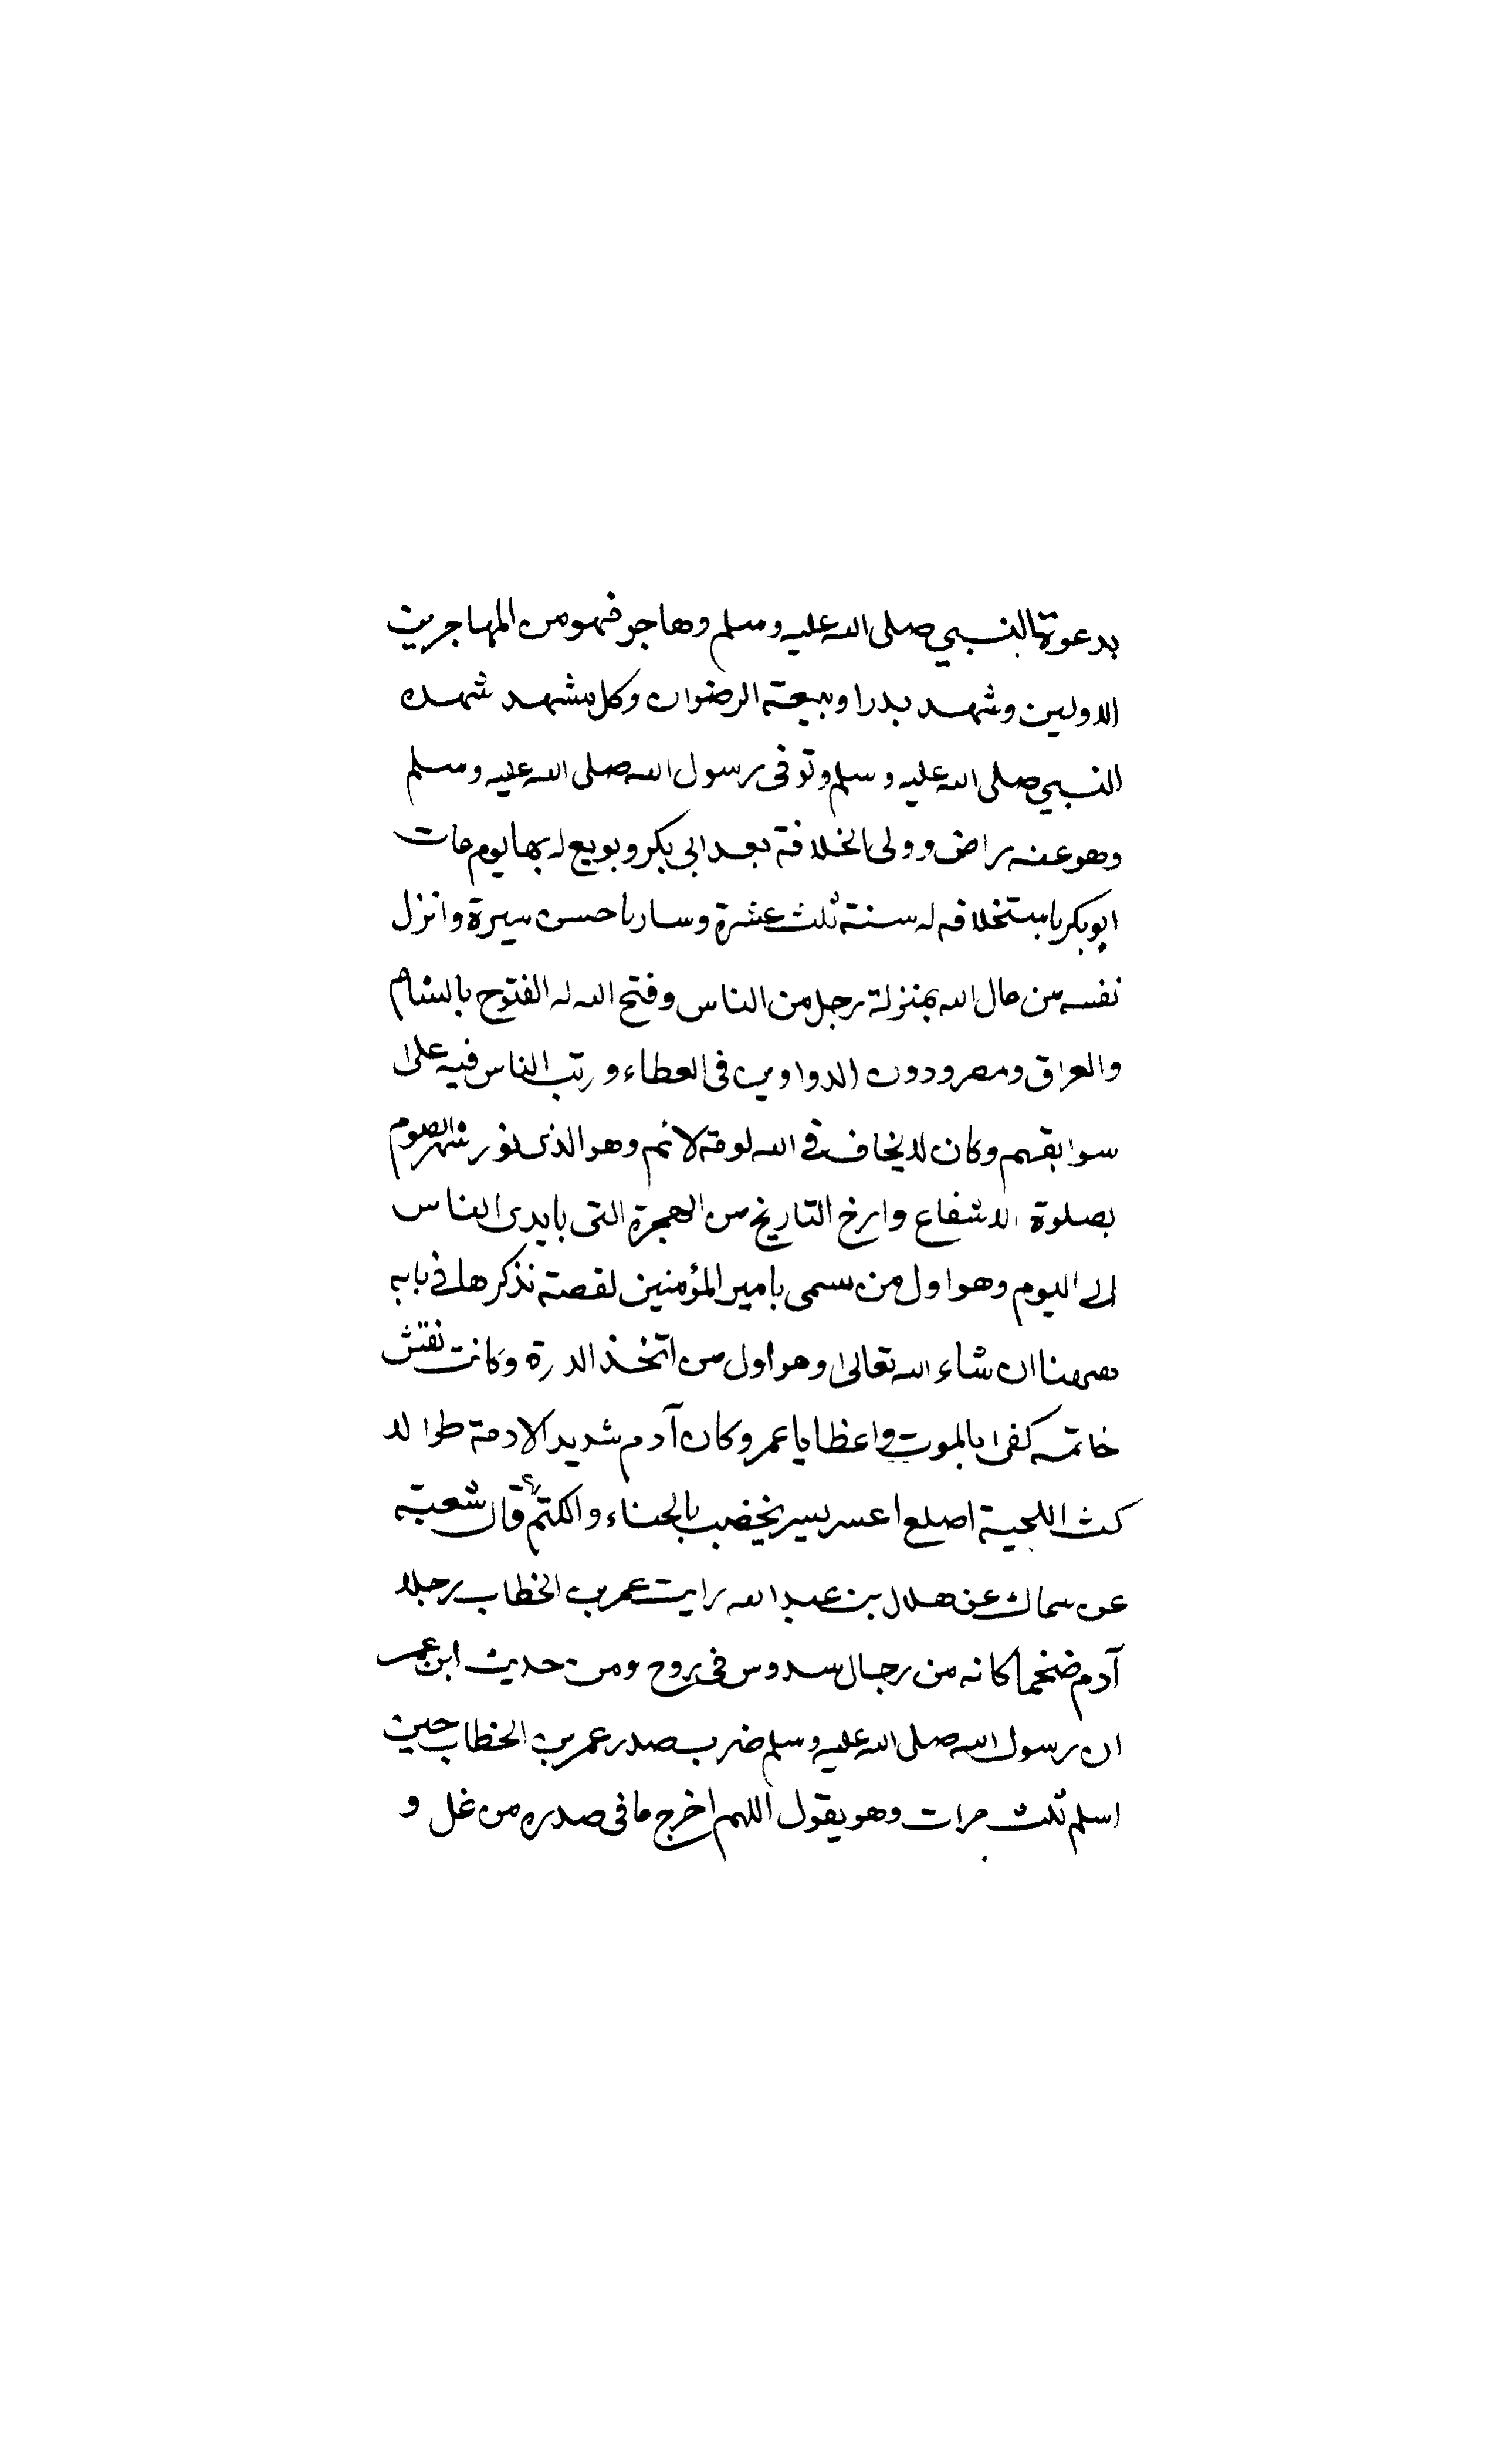 بدعوة النبي صلى الله عليه وسلم وهاجر فهو من المهاجرين
الاولين وشهد بدرا وبيعة الرضوان وكل مشهد شهده
النبي صلى الله عليه وسلم وتوفى رسول الله صلى الله عليه وسلم
وهو عنه راض وولى الخلافة بعد ابى بكر وبويع له بها يوم مات
ابو بكر باستخلافه له سنة ثلث عشرة وسار باحسن سيرة وانزل
نفسه من مال الله بمنزلة رجل من الناس وفتح الله له الفتوح بالشام
والعراق ومصر ودون الدواوين فى العطاء ورتب الناس فيه على
سوابقهم وكان لا يخاف في الله لومة لائم وهو الذى نور شهر الصوم
بصلوة الاشفاع وارخ التاريخ من الهجرة التى بايدى الناس
الى اليوم وهو اول من سمى بامير المؤمنين لقصة نذكرها في بابه
ههنا ان شاء الله تعالى وهو اول من اتخذ الدرة وكانت نقش
خاتمه كفى بالموت واعظا يا عمر وكان آدم شديد الادمة طوالا
كث اللحية اصلع اعسر يسر يخضب بالحناء والكتم قال شعبة
عن سماك عن هلال بن عبد الله رايت عمر بن الخطاب رجلا
آدم ضخما كانه من رجال سدوس فى روح ومن حديث ابن عمر
ان رسول الله صلى الله عليه وسلم ضرب صدر عمر بن الخطاب حين
اسلم ثلث مرات وهو يقول اللهم اخرج ما فى صدره من غل و